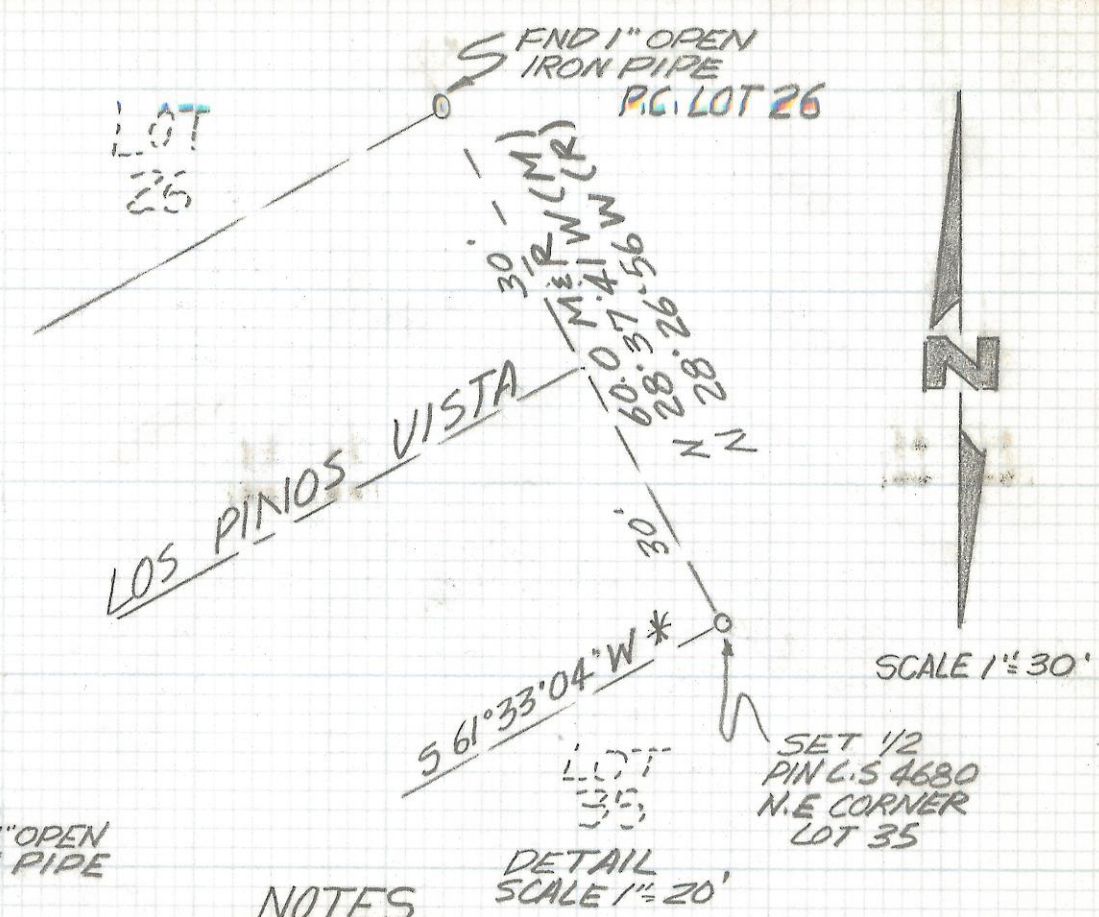 FND 1" OPEN
IRON PIPE
P.C. LOT 26
LOT
26
30'
60.0 M&R (M)
28.37.41 W (R)
N 28.26.56 W
N
LOS PINOS VISTA
30'
S 61°33'04" W *
N
SCALE 1"=30'
SET 1/2
PIN L.S 4680
N.E CORNER
LOT 35
LOT
35
DETAIL
SCALE 1"=20'
"OPEN
PIPE
NOTES